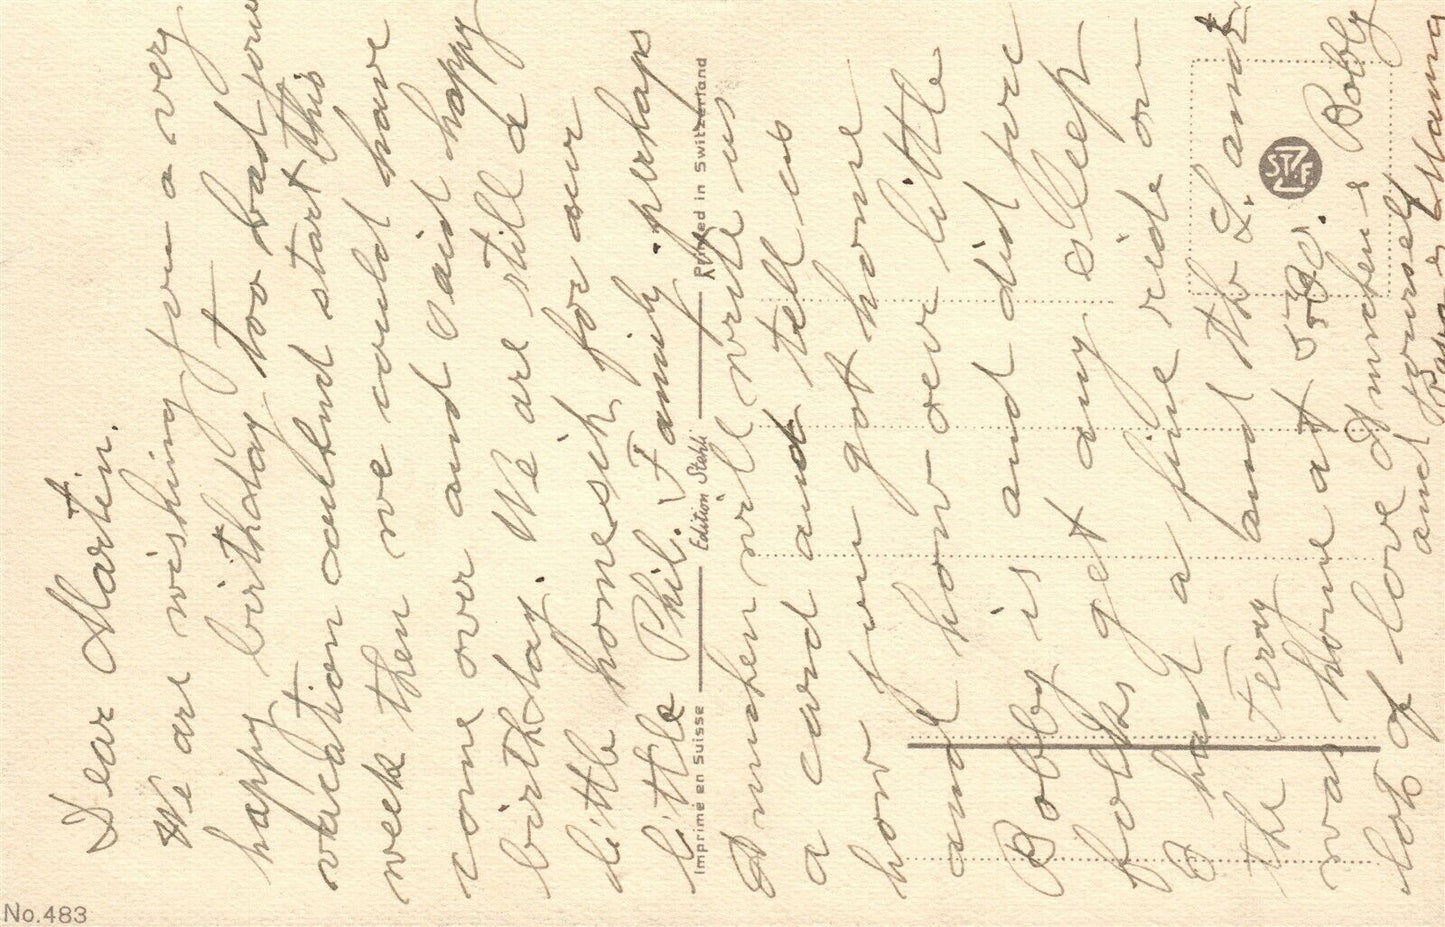 Dear Martin.
We are wishing you a very
happy birthday too bad your
vacation couldnt start this
week then we could have
come over and said happy
birthday. We are still a
little homesick for our
little Phil. Family. perhaps
will write us
a card and tell us
how you got home
and how our little
Bobby is and did you
folks get any sleep
I had a fine ride on
the Ferry and the L. and
was home at 5
lots of love Bobby
and yourself
Imprimé en Suisse
Edition Stehli
Printed in Switzerland
STZF
No.483